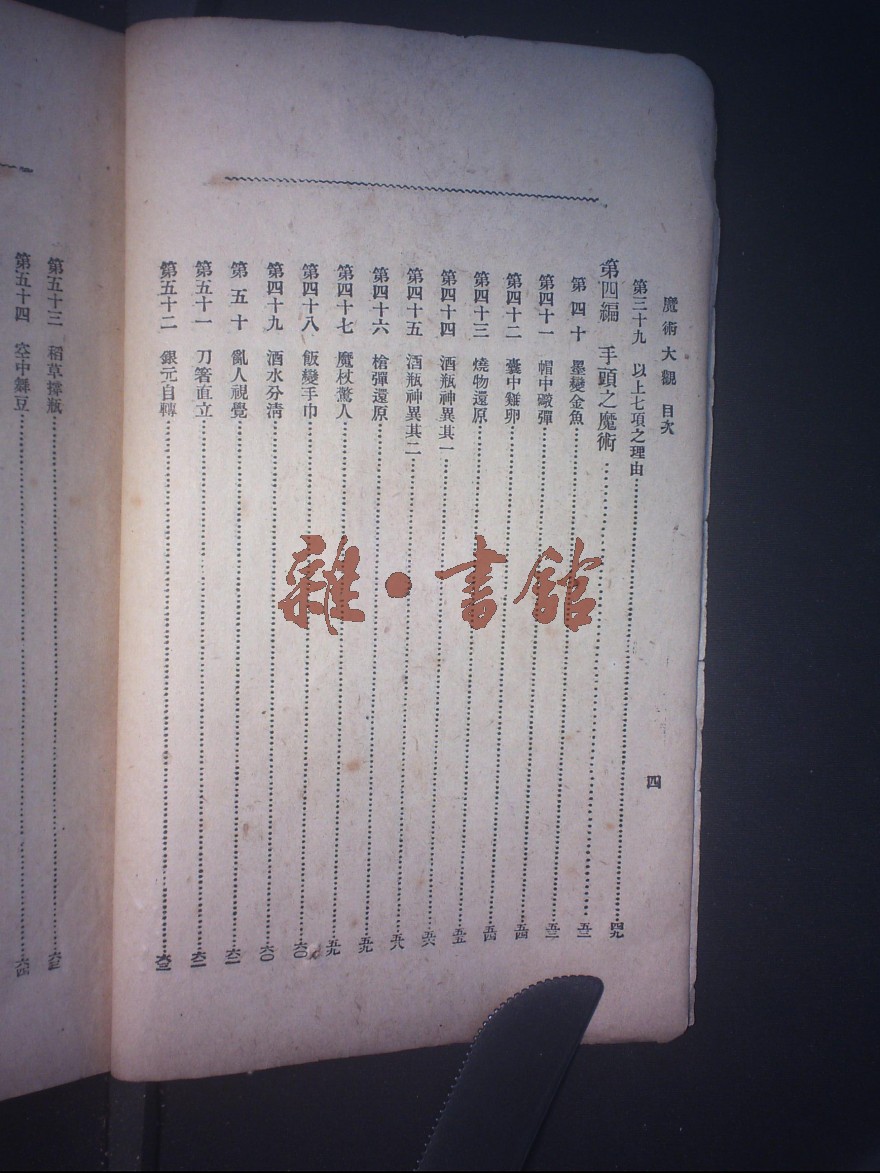 魔術大觀 目次
四
第三十九 以上七項之理由 四九
第四編 手頭之魔術 五三
第四十 墨變金魚 五三
第四十一 帽中礮彈 五四
第四十二 囊中雞卵 五四
第四十三 燒物還原 五五
第四十四 酒瓶神異其一 五六
第四十五 酒瓶神異其二 五八
第四十六 槍彈還原 五九
第四十七 魔杖驚人 五九
第四十八 飯變手巾 六〇
第四十九 酒水分清 六〇
第五十 亂人視覺 六一
第五十一 刀箸直立 六二
第五十二 銀元自轉 六三
第五十三 稻草 瓶 六三
第五十四 空中 豆 六四
雜·書館